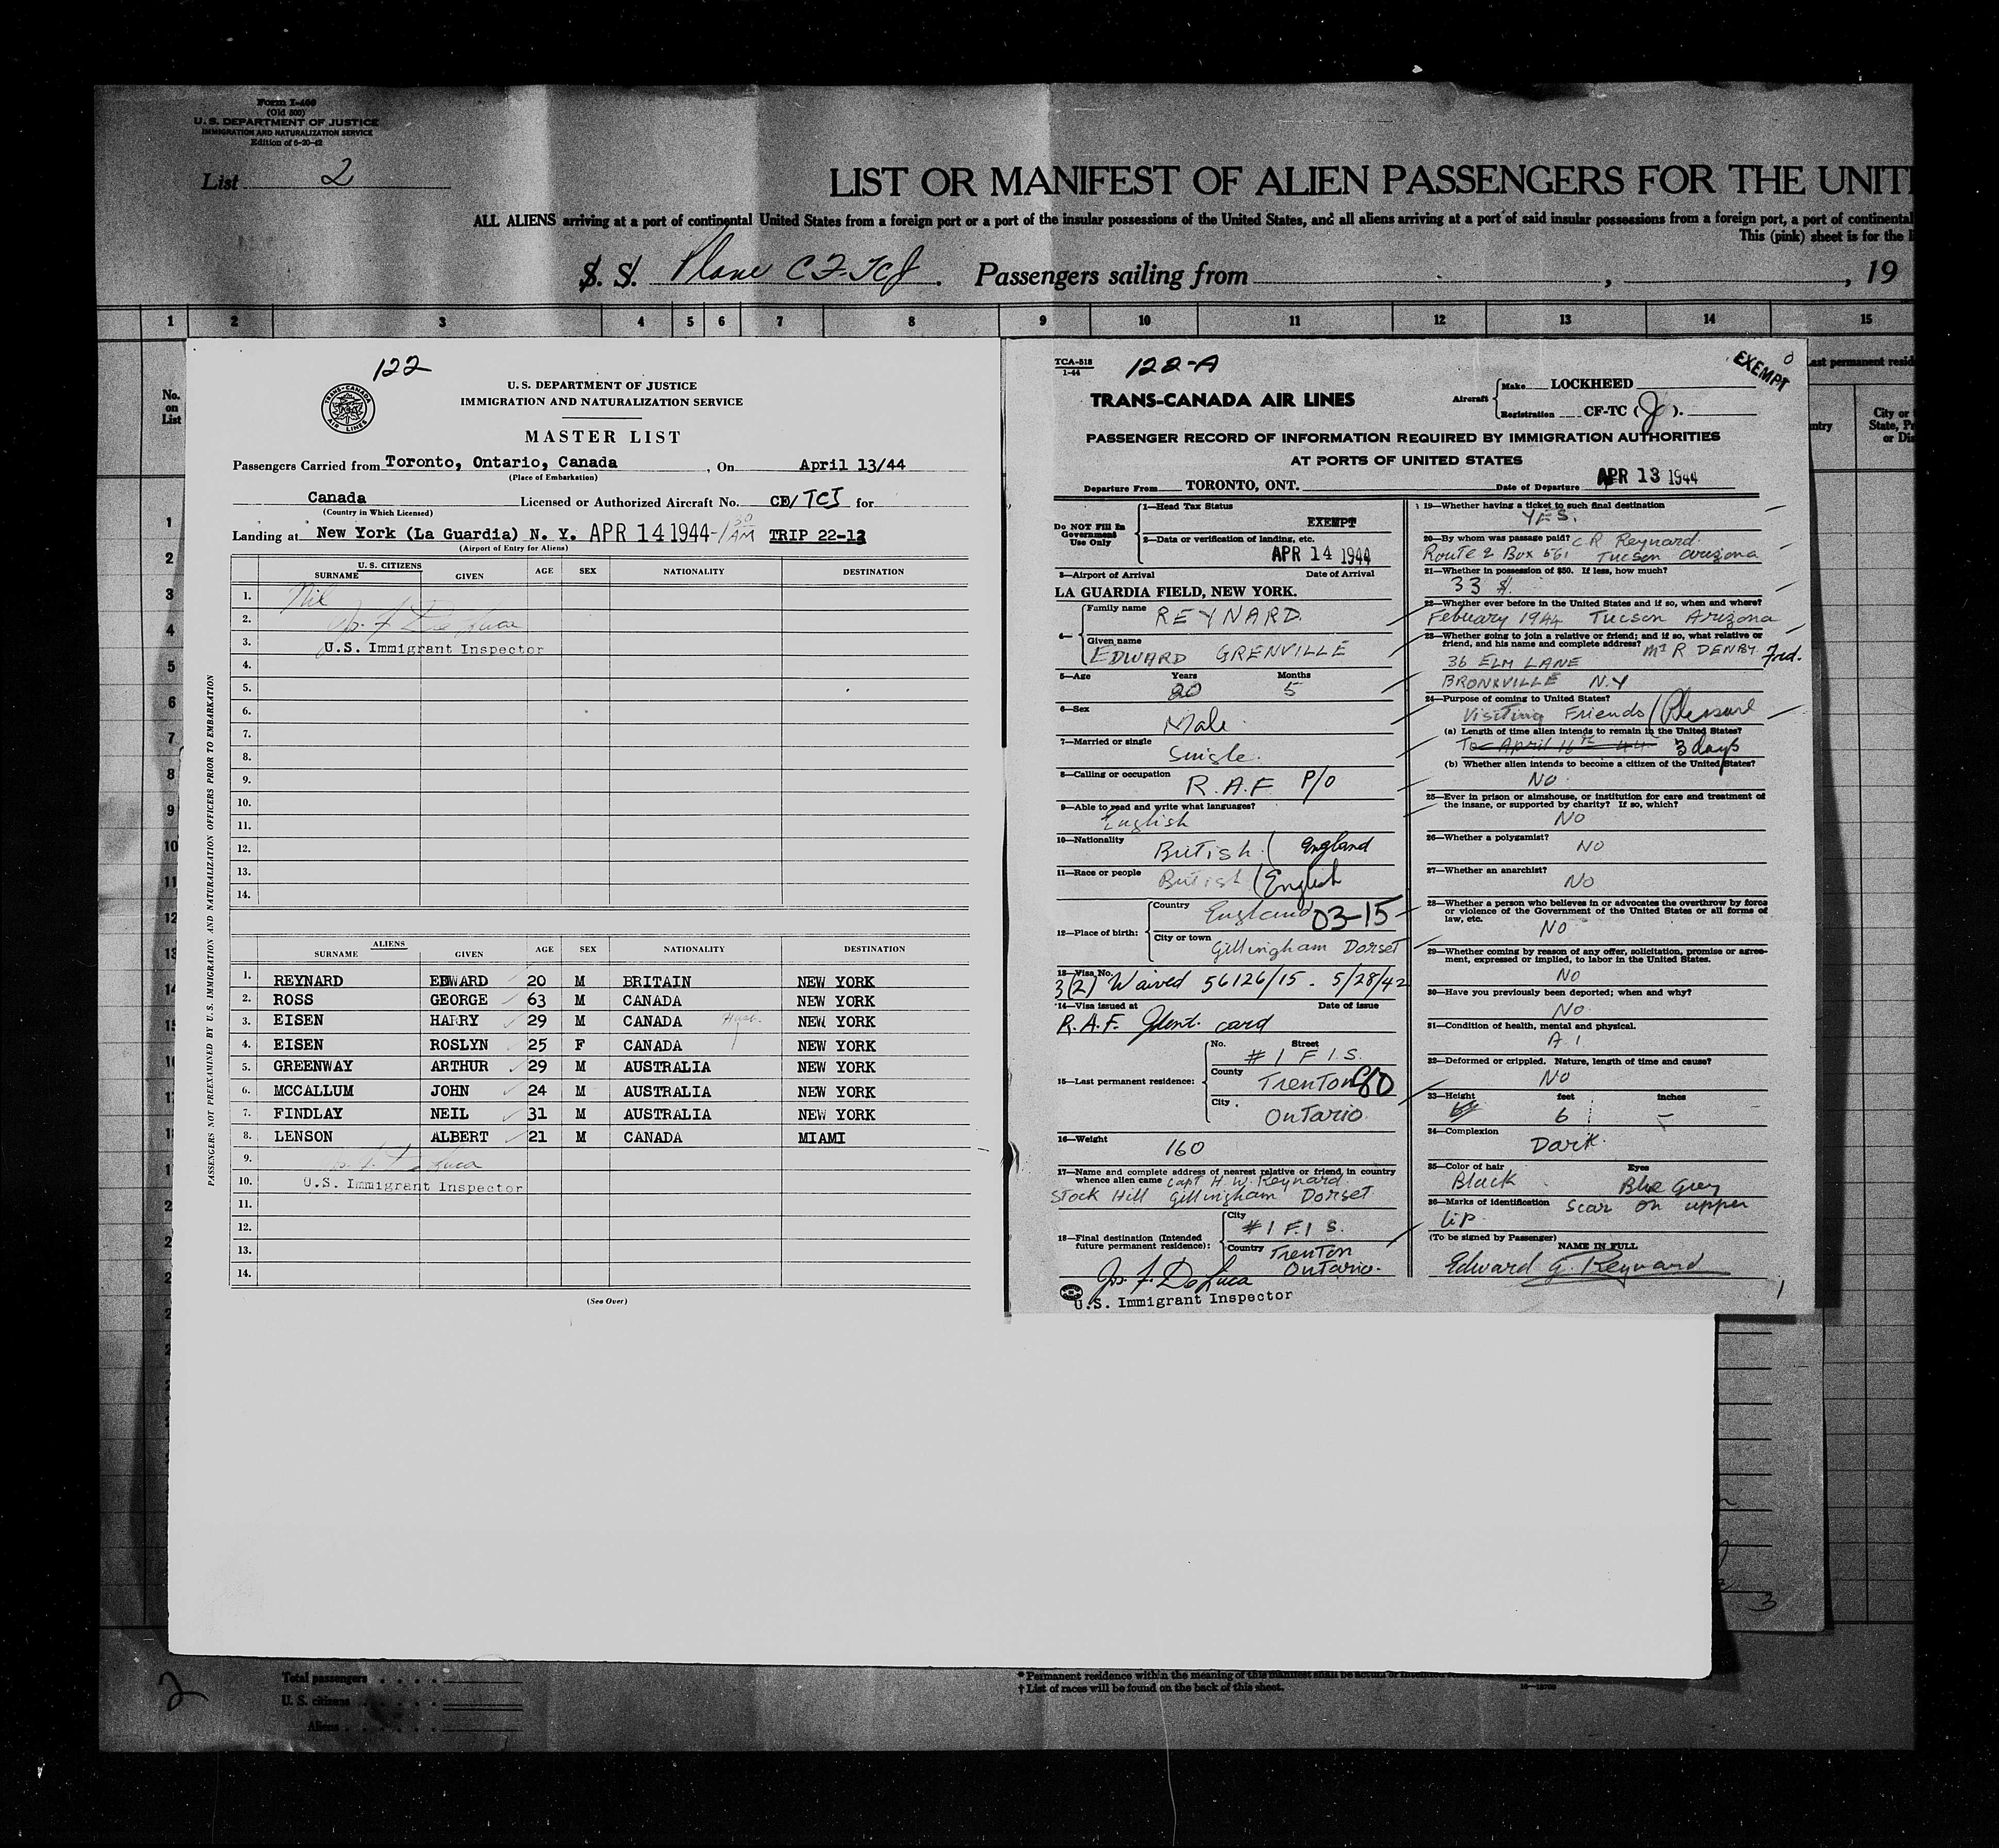 Form I-466
(Old 500)
U. S. DEPARTMENT OF JUSTICE
IMMIGRATION AND NATURALIZATION SERVICE
Edition of 6-20-42
List 2
LIST OR MANIFEST OF ALIEN PASSENGERS FOR THE UNIT
ALL ALIENS arriving at a port of continental United States from a foreign port or a port of the insular possessions of the United States, and all aliens arriving at a port of said insular possessions from a foreign port, a port of continental
This (pink) sheet is for the
S. S. Plane CF-TCJ. Passengers sailing from , , 19
1 2 3 4 5 6 7 8 9 10 11 12 13 14 15
No. on List
122
TRANS-CANADA AIR LINES
U. S. DEPARTMENT OF JUSTICE
IMMIGRATION AND NATURALIZATION SERVICE
MASTER LIST
Passengers Carried from Toronto, Ontario, Canada , On April 13/44
(Place of Embarkation)
Canada Licensed or Authorized Aircraft No. CF/TCJ for
(Country in Which Licensed)
Landing at New York (La Guardia) N. Y. APR 14 1944-1 30 AM TRIP 22-13
(Airport of Entry for Aliens)
U. S. CITIZENS
SURNAME GIVEN AGE SEX NATIONALITY DESTINATION
1. Nil
2. Jos. F. De Luca
3. U.S. Immigrant Inspector
4.
5.
6.
7.
8.
9.
10.
11.
12.
13.
14.
PASSENGERS NOT PREEXAMINED BY U. S. IMMIGRATION AND NATURALIZATION OFFICERS PRIOR TO EMBARKATION
ALIENS
SURNAME GIVEN AGE SEX NATIONALITY DESTINATION
1. REYNARD EDWARD 20 M BRITAIN NEW YORK
2. ROSS GEORGE 63 M CANADA NEW YORK
3. EISEN HARRY 29 M CANADA Husb. NEW YORK
4. EISEN ROSLYN 25 F CANADA NEW YORK
5. GREENWAY ARTHUR 29 M AUSTRALIA NEW YORK
6. MCCALLUM JOHN 24 M AUSTRALIA NEW YORK
7. FINDLAY NEIL 31 M AUSTRALIA NEW YORK
8. LENSON ALBERT 21 M CANADA MIAMI
9. Jos. F. De Luca
10. U.S. Immigrant Inspector
11.
12.
13.
14.
(See Over)
TCA-518
1-44
122-A
EXEMPT
TRANS-CANADA AIR LINES
Aircraft Make LOCKHEED
Registration CF-TC (J).
PASSENGER RECORD OF INFORMATION REQUIRED BY IMMIGRATION AUTHORITIES
AT PORTS OF UNITED STATES
Departure From TORONTO, ONT. Date of Departure APR 13 1944
Do NOT Fill In Government Use Only
1—Head Tax Status
EXEMPT
2—Data or verification of landing, etc.
APR 14 1944
3—Airport of Arrival Date of Arrival
LA GUARDIA FIELD, NEW YORK.
4— Family name REYNARD
Given name
EDWARD GRENVILLE
5—Age Years 20 Months 5
6—Sex Male
7—Married or single Single.
8—Calling or occupation R.A.F P/O
9—Able to read and write what languages?
English
10—Nationality British. ( England
11—Race or people British (English
12—Place of birth: Country England 03-15
City or town Gillingham Dorset
13—Visa No.
3(2) Waived 56126/15. 5/28/42
14—Visa issued at Date of issue
R.A.F. Ident. card
15—Last permanent residence: No. Street #1 F.I.S.
County Trenton 60
City Ontario
16—Weight 160
17—Name and complete address of nearest relative or friend, in country
whence alien came Capt H.W. Reynard.
Stock Hill Gillingham Dorset
18—Final destination (Intended future permanent residence): City #1 F.I.S.
Country Trenton
Ontario.
Jos. F. De Luca
U.S. Immigrant Inspector
19—Whether having a ticket to such final destination
YES.
20—By whom was passage paid? C R Reynard.
Route 2 Box 561 Tucson Arizona
21—Whether in possession of $50. If less, how much?
33 $.
22—Whether ever before in the United States and if so, when and where?
Febuary 1944 Tucson Arizona
23—Whether going to join a relative or friend; and if so, what relative or
friend, and his name and complete address? Mr R DENBY. Frd.
36 ELM LANE
BRONXVILLE N.Y
24—Purpose of coming to United States?
Visiting Friends / Pleasure
(a) Length of time alien intends to remain in the United States?
To April 16th 44 3 days
(b) Whether alien intends to become a citizen of the United States?
NO.
25—Ever in prison or almshouse, or institution for care and treatment of
the insane, or supported by charity? If so, which?
NO
26—Whether a polygamist?
NO
27—Whether an anarchist?
NO
28—Whether a person who believes in or advocates the overthrow by force
or violence of the Government of the United States or all forms of
law, etc.
NO
29—Whether coming by reason of any offer, solicitation, promise or agree-
ment, expressed or implied, to labor in the United States.
NO
30—Have you previously been deported; when and why?
NO.
31—Condition of health, mental and physical.
A.1.
32—Deformed or crippled. Nature, length of time and cause?
NO
33—Height feet 6 inches –
34—Complexion
Dark.
35—Color of hair Eyes
Black Blue Grey
36—Marks of identification Scar on upper
lip.
(To be signed by Passenger)
NAME IN FULL
Edward G. Reynard
1
Last permanent resid
City or
State, Pr
or Di
3
2
Total passengers
U. S. citizens
Aliens
* Permanent residence within the meaning of this manifest shall be actual or intended
† List of races will be found on the back of this sheet.